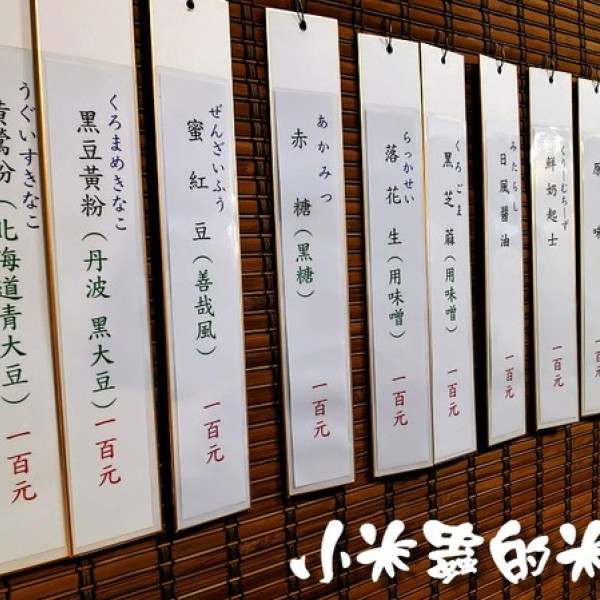 うぐいすきなこ
黃鶯粉(北海道青大豆)一百元
くろまめきなこ
黑豆黃粉(丹波 黑大豆)一百元
ぜんざいふう
蜜紅豆(善哉風)一百元
あかみつ
赤糖(黑糖)一百元
らっかせい
落花生(用味噌)一百元
くろごま
黑芝蔴(用味噌)一百元
みたらし
日風醬油 一百元
くりーむちーず
鮮奶起士 一百元
原味 一百元
小米蟲的米